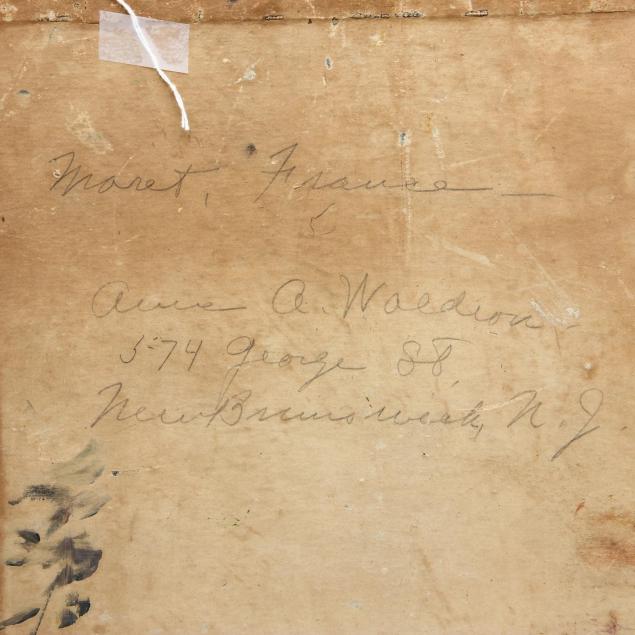 Moret, France —
5
Anna A. Waldron.
574 George St,
New Brunswick, N.J.